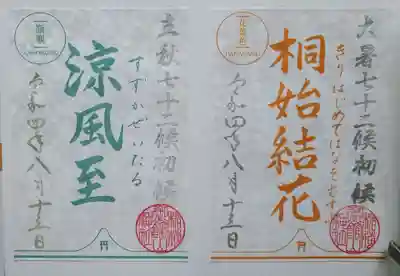 大暑七十二候初候
きりはじめてはなをむすぶ
桐始結花
令和四年八月十三日
円
立秋七十二候初候
すずかぜいたる
涼風至
令和四年八月十三日
円